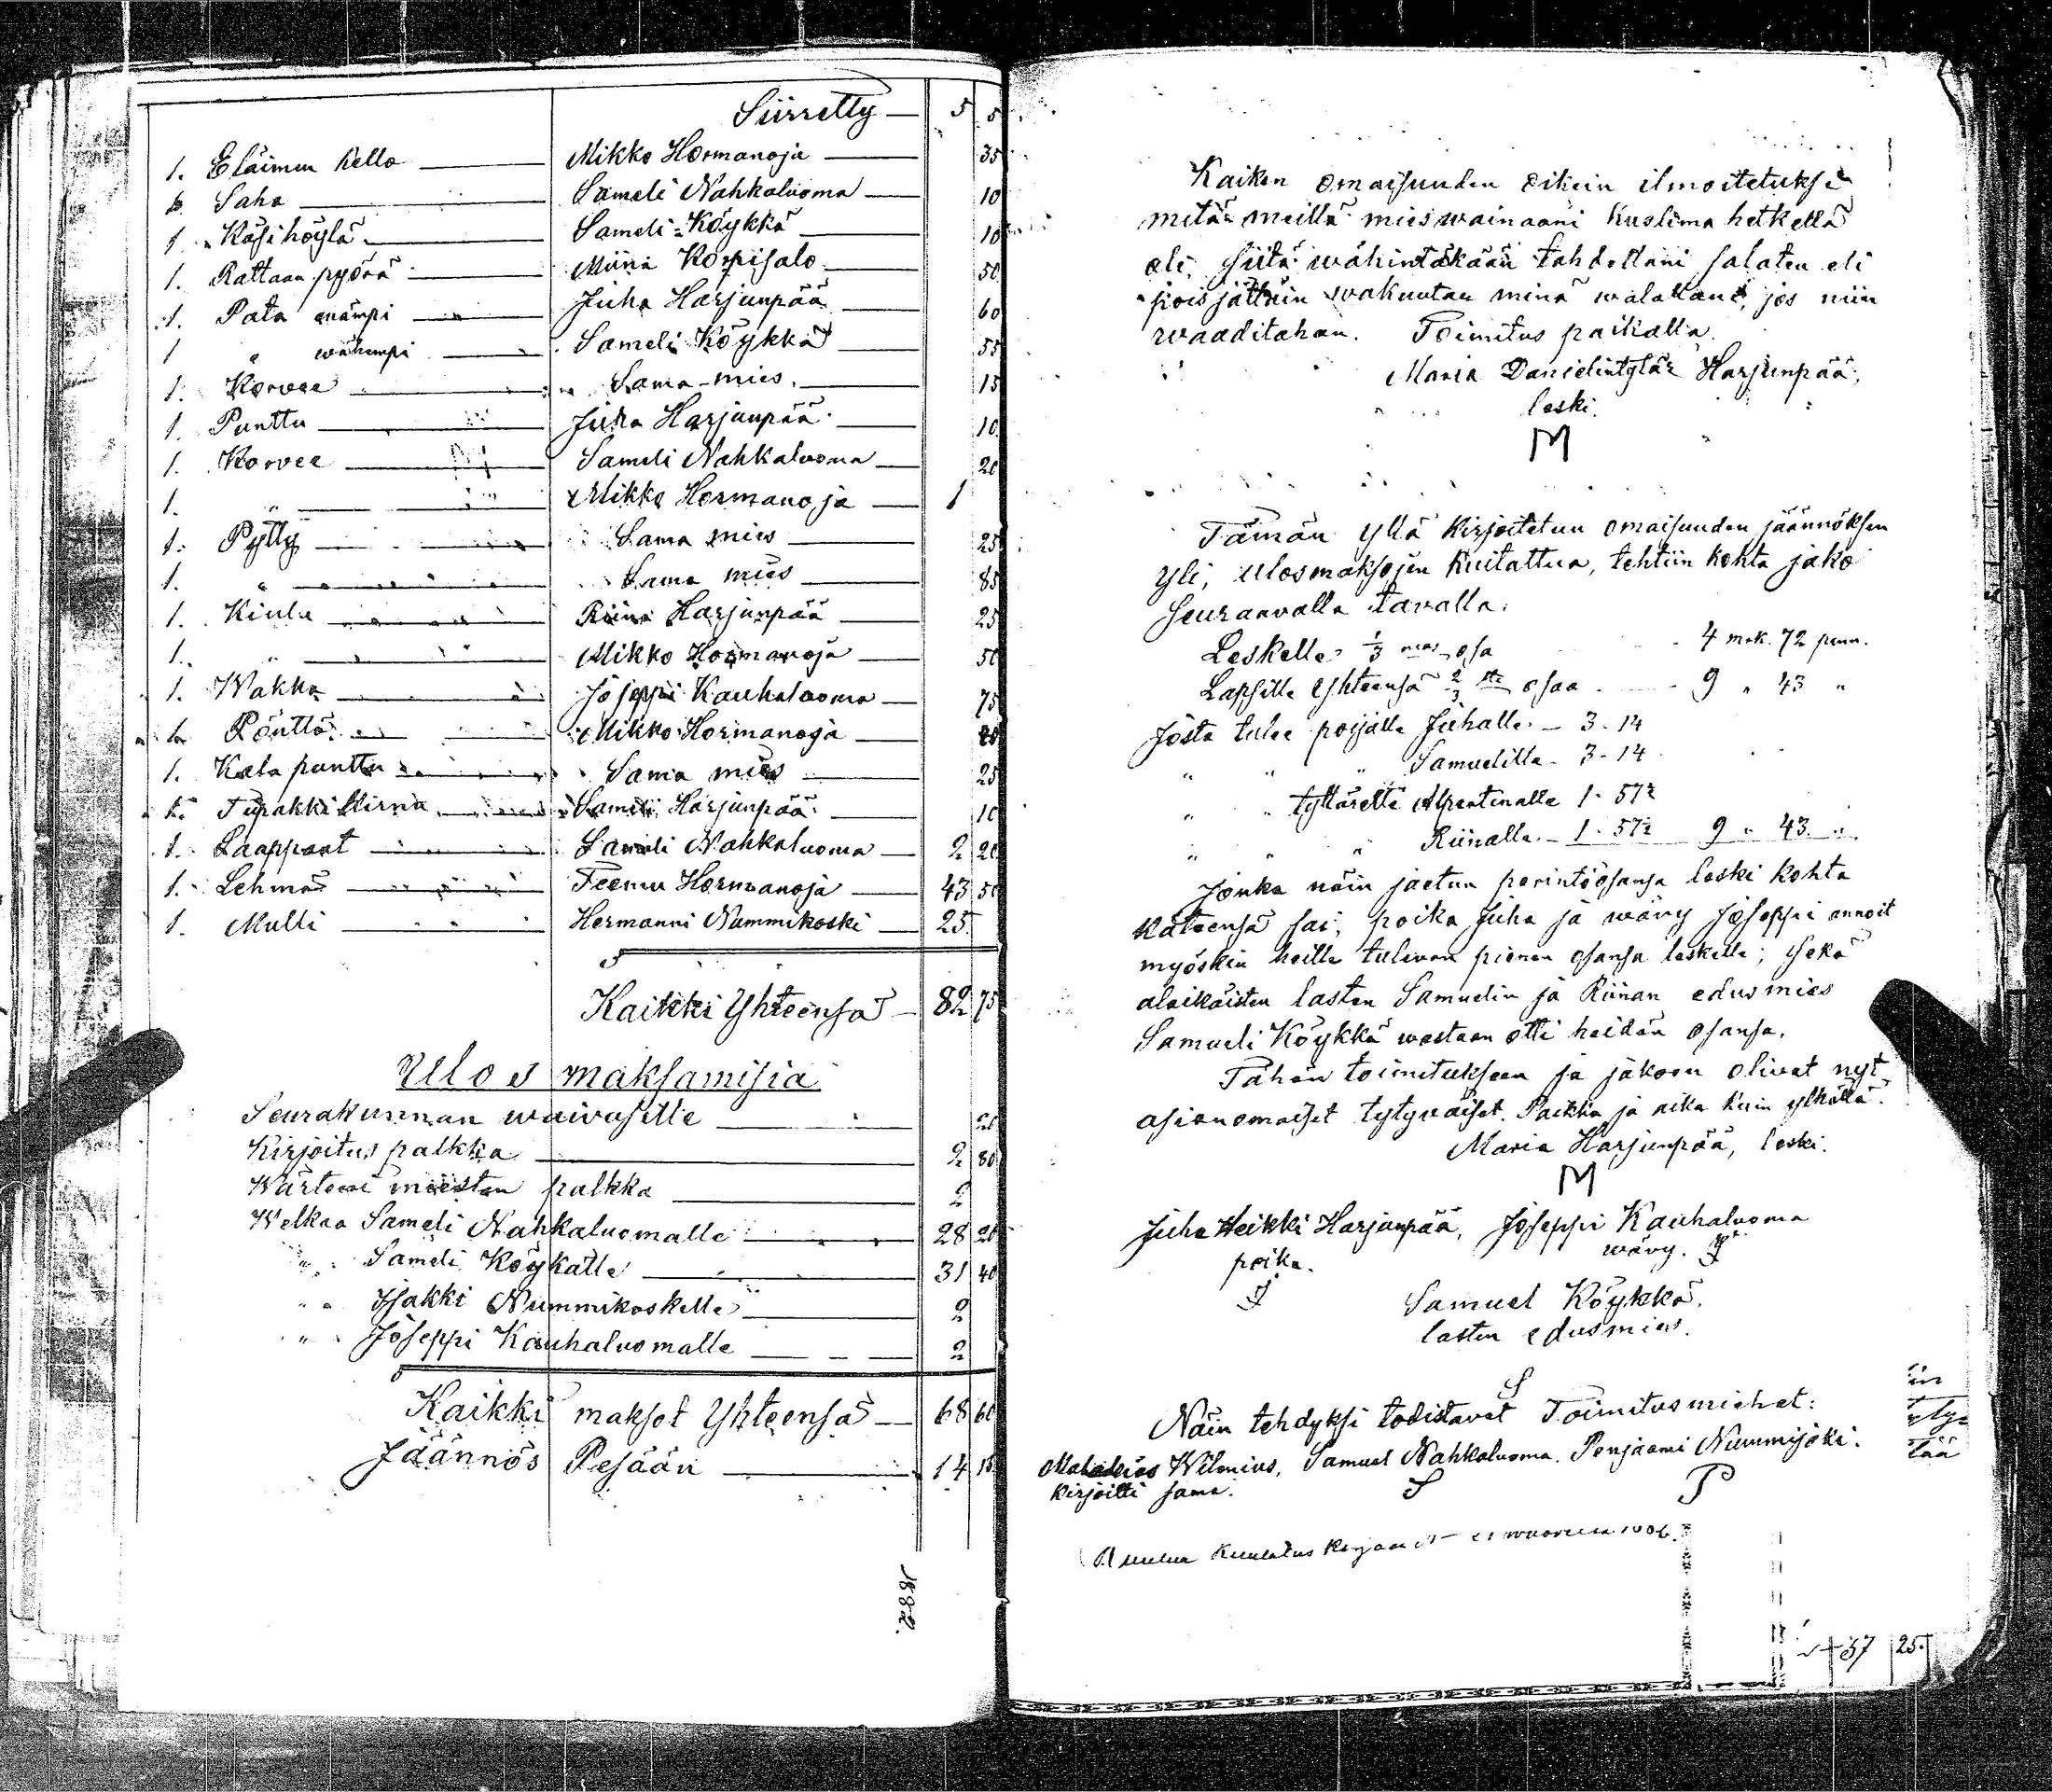 Siirretty — 5 5
1. Eläimen kello — Mikko Hormanoja — 35
1. Saha — Sameli Nahkaluoma — 10
1. Käsihöylä — Sameli Köykkä — 10
1. Rattaan pyörä — Miina Korpisalo — 50
1. Pata enämpi — Juha Harjunpää — 60
1 " wähempi — Sameli Köykkä — 55
1. Korvee — Sama mies — 15
1. Punttu — Juha Harjunpää — 10
1. Korvee — Sameli Nahkaluoma — 20
1. " — Mikko Hormanoja — 1
1. Pytty — Sama mies — 25
1. " — Sama mies — 85
1. Kiulu — Riina Harjunpää — 25
1. " — Mikko Hormanoja — 50
1. Wakka — Joseppi Kauhaluoma — 75
1. Pönttö — Mikko Hormanoja —
1. Kala punttu — Sama mies — 25
1. Tupakki — Sameli Harjunpää — 10
1. Laappaat — Sameli Nahkaluoma — 2 20
1. Lehmä — Teemu Hormanoja — 43 50
1. Mulli — Hermanni Nummikoski — 25
Kaikki Yhteensä — 82 75
Ulos maksamisia
Seurakunnan waivasille —
Kirjoitus palkka — 2 80
Wärteerimiesten palkka — 2
Welkaa Sameli Nahkaluomalle — 28 20
" Sameli Köykälle — 31 40
" Isakki Nummikoskelle — 2
" Joseppi Kauhaluomalle — 2
Kaikki maksot Yhteensä — 68 60
Jäännös Pesään — 14 15
1882.
Kaiken omaisuuden oikein ilmoitetuksi
mitä meillä mieswainaani kuolima hetkellä
oli, siitä wähintäkään tahdottani salaten eli
pois jättäin wakuutan minä walallani, jos niin
waaditahan. Toimitus paikalla.
Maria Danielintytär Harjunpää,
leski.
M
Tämän yllä kirjoitetun omaisuuden jäännöksen
yli, ulosmaksojen kuitattua, tehtiin kohta jako
seuraavalla tavalla:
Leskelle 1/3 mas osa 4 mrk. 72 penn.
Lapsille Yhteensä 2/3 osaa 9 " 43 "
Josta tulee pojalle Juhalle — 3 - 14
" " " Samuelille - 3 - 14
" " tyttärelle Alpertinalle 1 - 57½
" " " Riinalle - 1 - 57½ 9 " 43 "
Jonka näin jaetun perintöosansa leski kohta
käteensä sai, poika Juha ja wävy Joseppi annoit
myöskin heille tulevan pienen osansa leskelle; sekä
alaikäisten lasten Samuelin ja Riinan edusmies
Samueli Köykkä wastaan otti heidän osansa.
Tähän toimitukseen ja jakoon olivat nyt
asianomaiset tytyväiset. Paikka ja aika kuin ylhällä.
Maria Harjunpää, leski.
M
Juha Heikki Harjunpää, Joseppi Kauhaluoma
poika. wävy.
Samuel Köykkä.
lasten edusmies.
S
Näin tehdyksi todistavat Toimitusmiehet:
Wilenius, Samuel Nahkaluoma. Penjaami Nummijoki.
kirjoitti sama. S P
37 25